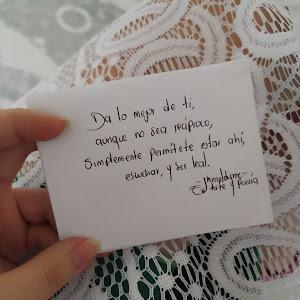 Da lo mejor de ti,
aunque no sea recíproco,
Simplemente permítete estar ahí,
escuchar, y ser leal.
Arte y Poesía